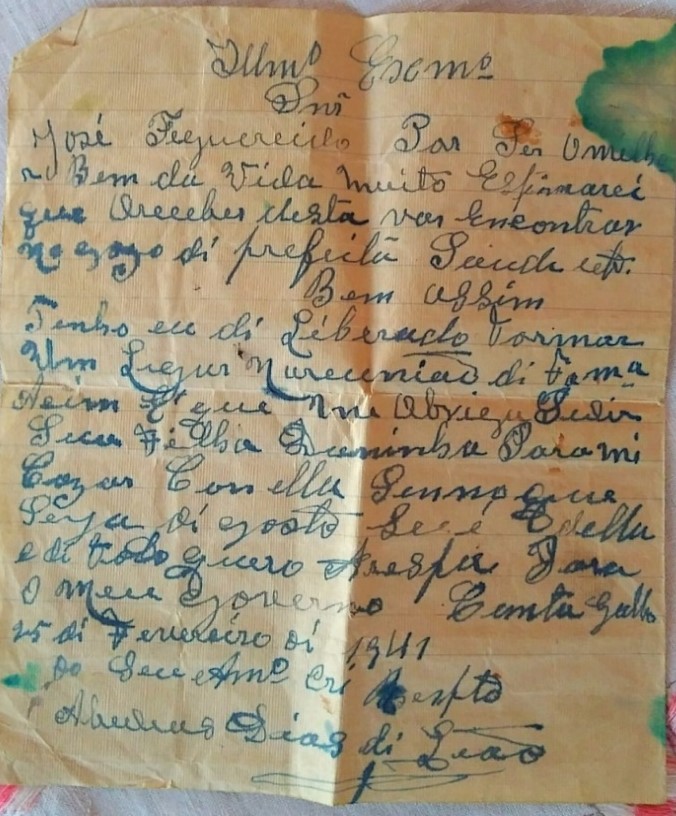 Illmº Exmº
Snr
José Figuereido Por Ser Omelho
r Bem da Vida muito Estimarei
que Oreceber desta vos Encontrar
no gozo di prefeita Saude etc.
Bem assim
Tenho eu di Liberado Tormar
Um Lugar Nareunião di Famª
Acim E que me Obriga Pedir
Sua Filha Para mi
Cazar Con ella Sunno que
Seja di gosto Seu é della
e di todo quero Arespta Para
O meu Governo Canta Gallo
25 di Fevereiro di 1941
do Seu Amº Cri Respto
Dias di Leão